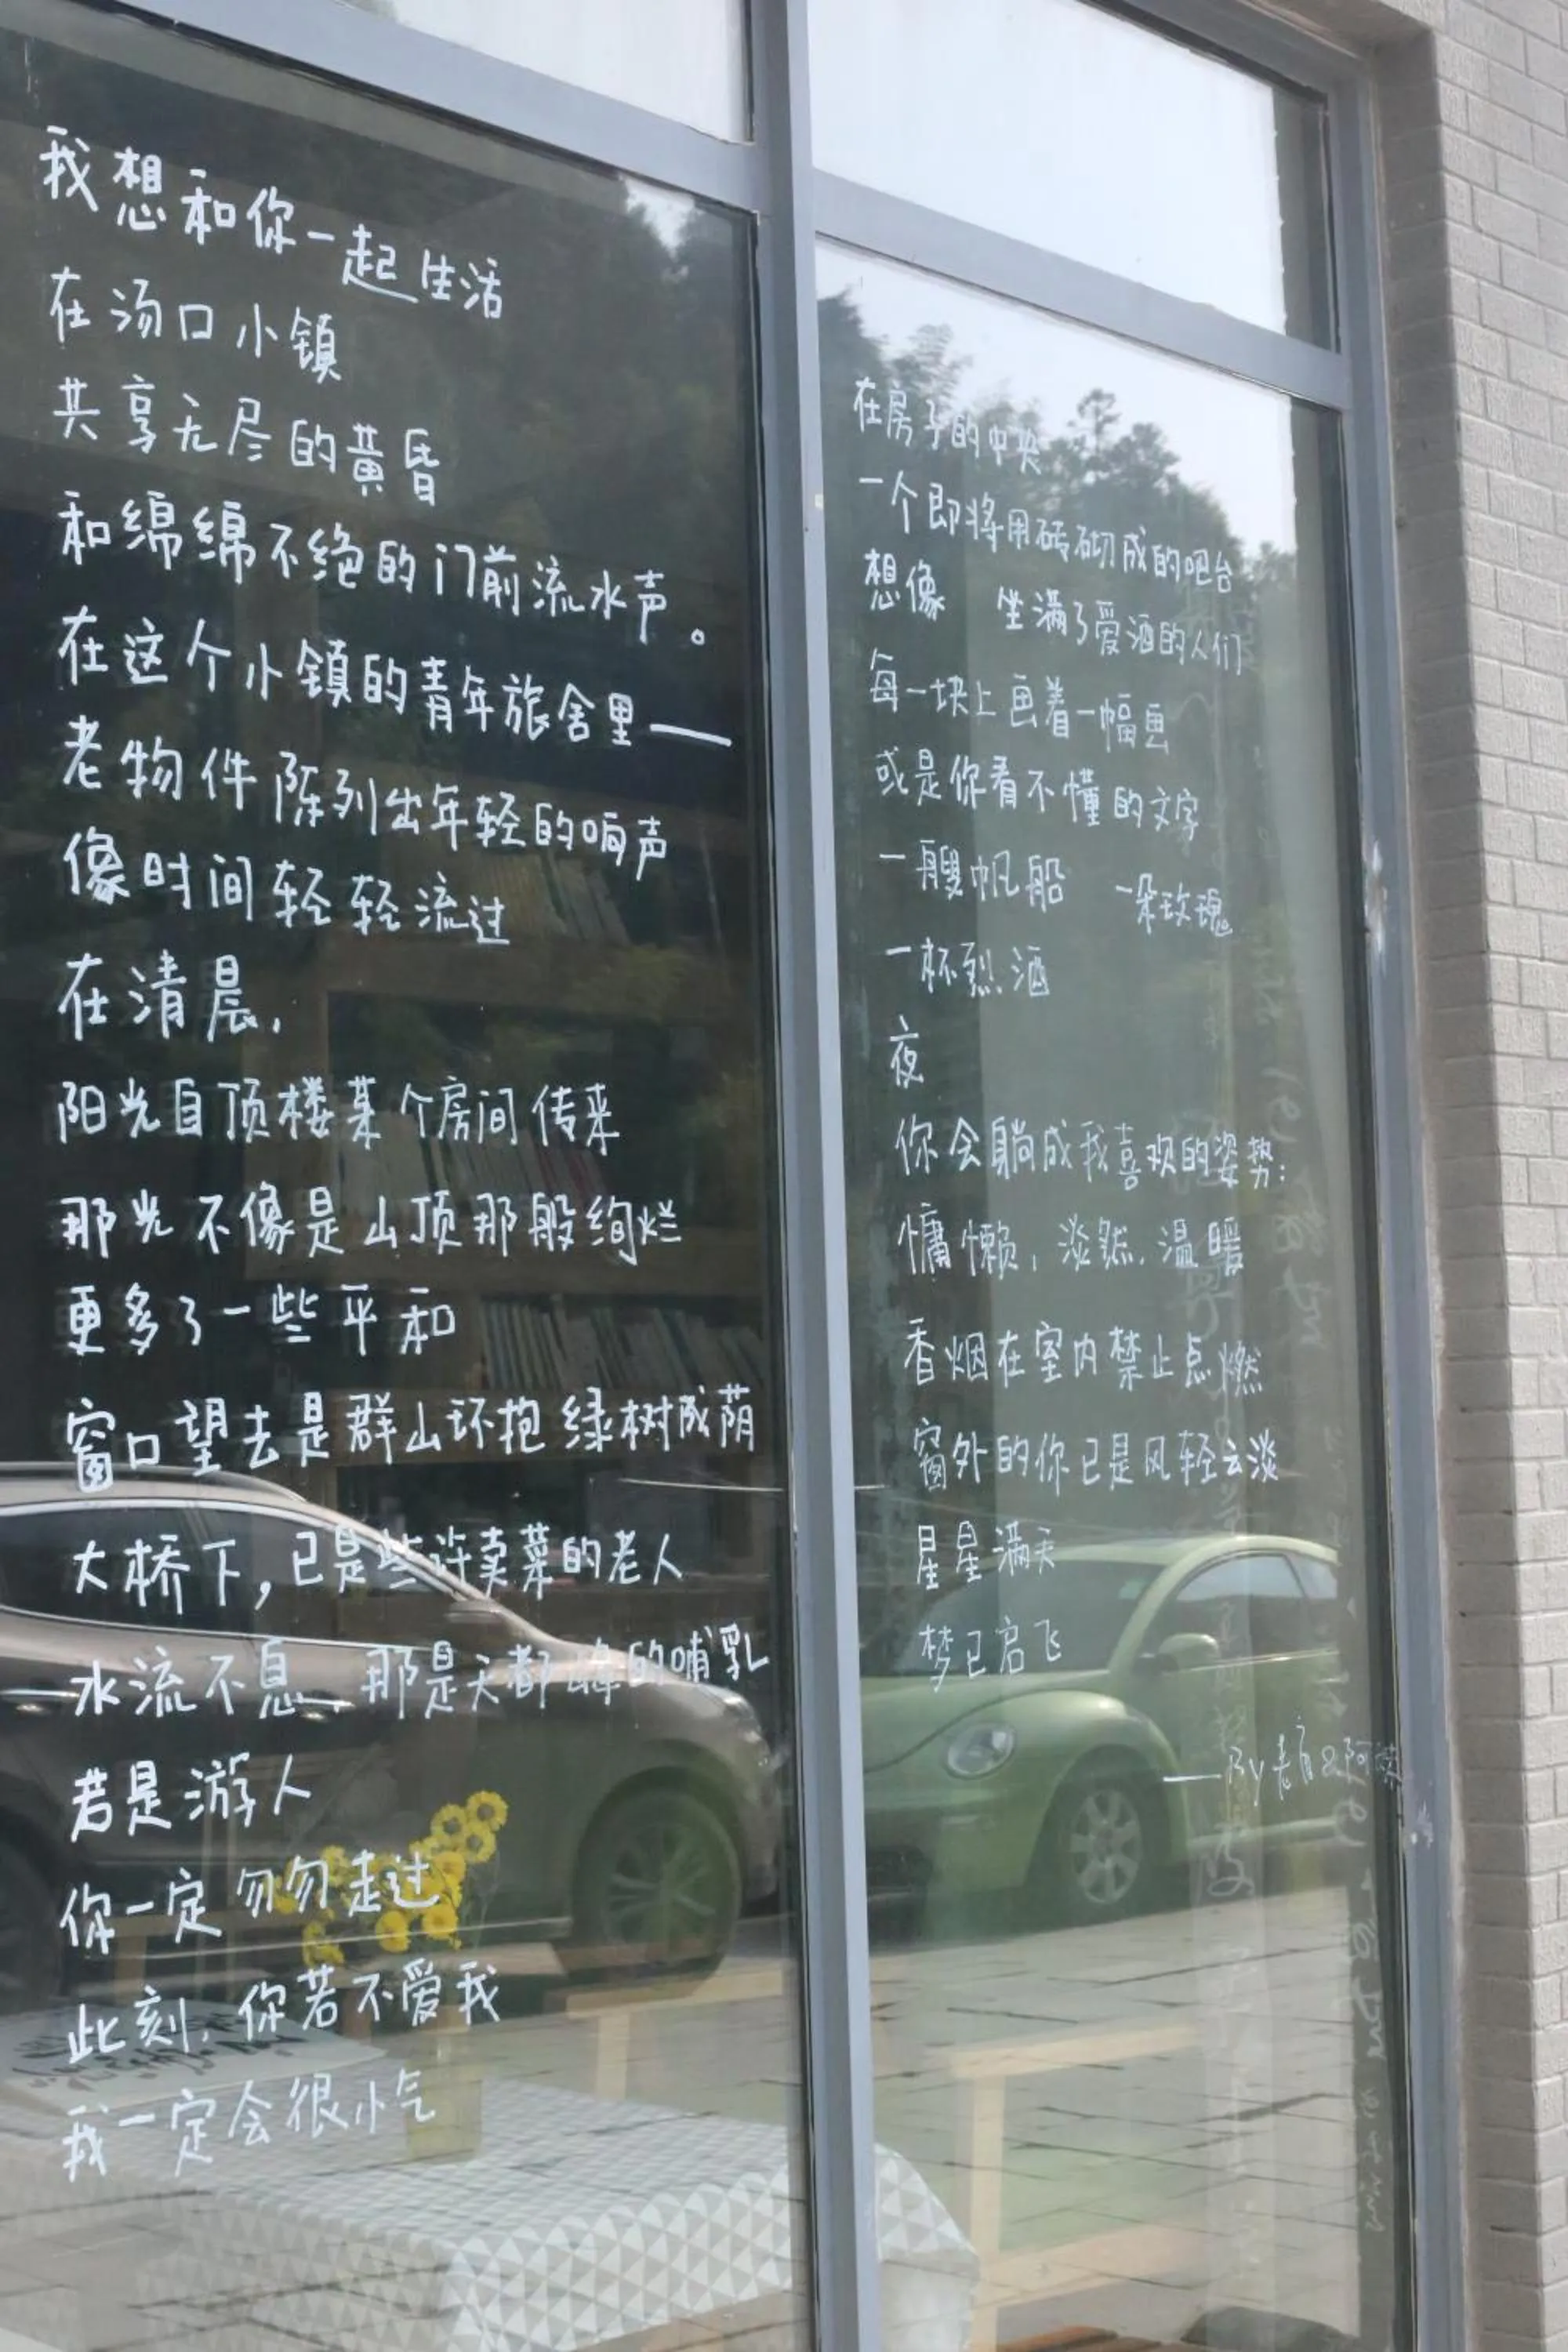 我想和你一起生活
在汤口小镇
共享无尽的黄昏
和绵绵不绝的门前流水声。
在这个小镇的青年旅舍里——
老物件陈列出年轻的响声
像时间轻轻流过
在清晨,
阳光自顶楼某个房间传来
那光不像是山顶那般绚烂
更多了一些平和
窗口望去是群山环抱 绿树成荫
大桥下,已是些许卖菜的老人
水流不息,那是天都峰的哺乳
若是游人
你一定匆匆走过
此刻,你若不爱我
我一定会很小气
在房子的中央
一个即将用砖砌成的吧台
想像 坐满了爱酒的人们
每一块上画着一幅画
或是你看不懂的文字
一艘帆船 一朵玫瑰
一杯烈酒
夜
你会躺成我喜欢的姿势:
慵懒,淡然,温暖
香烟在室内禁止点燃
窗外的你已是风轻云淡
星星满天
梦已启飞
——By老肩&阿